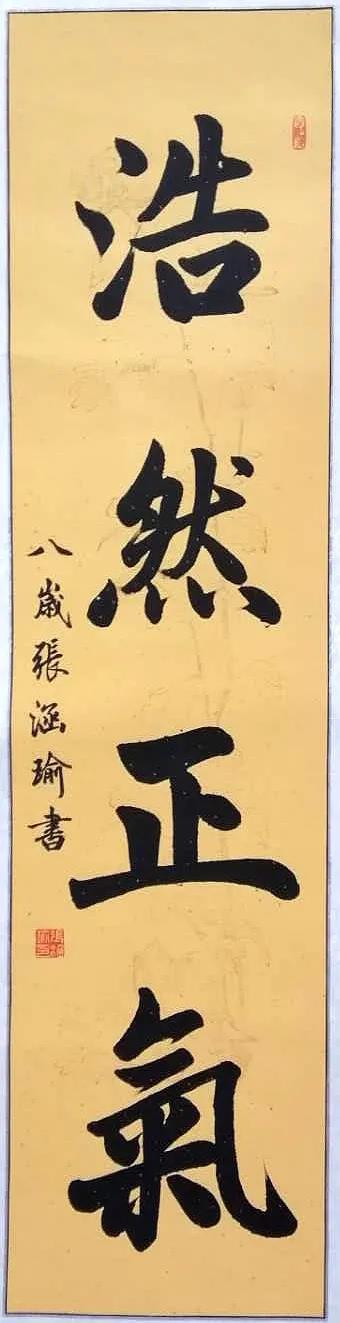 浩然正氣
八歲張涵瑜書